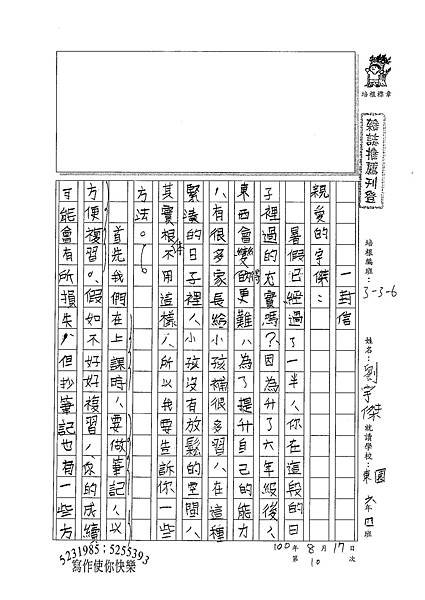 培根標章
雜誌推薦刊登
培根編班：3-3-6
姓名：劉宇傑
就讀學校：東園
六年四班
一封信
親愛的宇傑：
暑假已經過了一半，你在這段的日
子裡過的充實嗎？因為升了六年級後，
東西會變的更難，為了提升自己的能力
，有很多家長給小孩補很多習，在這種
緊湊的日子裡，小孩沒有放鬆的空間，
其實根本不用這樣，所以我要告訴你一些
方法。
首先我們在上課時，要做筆記，以
方便複習。假如不好好複習，你的成績
可能會有所損失，但抄筆記也有一些方
100年8月17日
第10次
5231985；5255393
寫作使你快樂